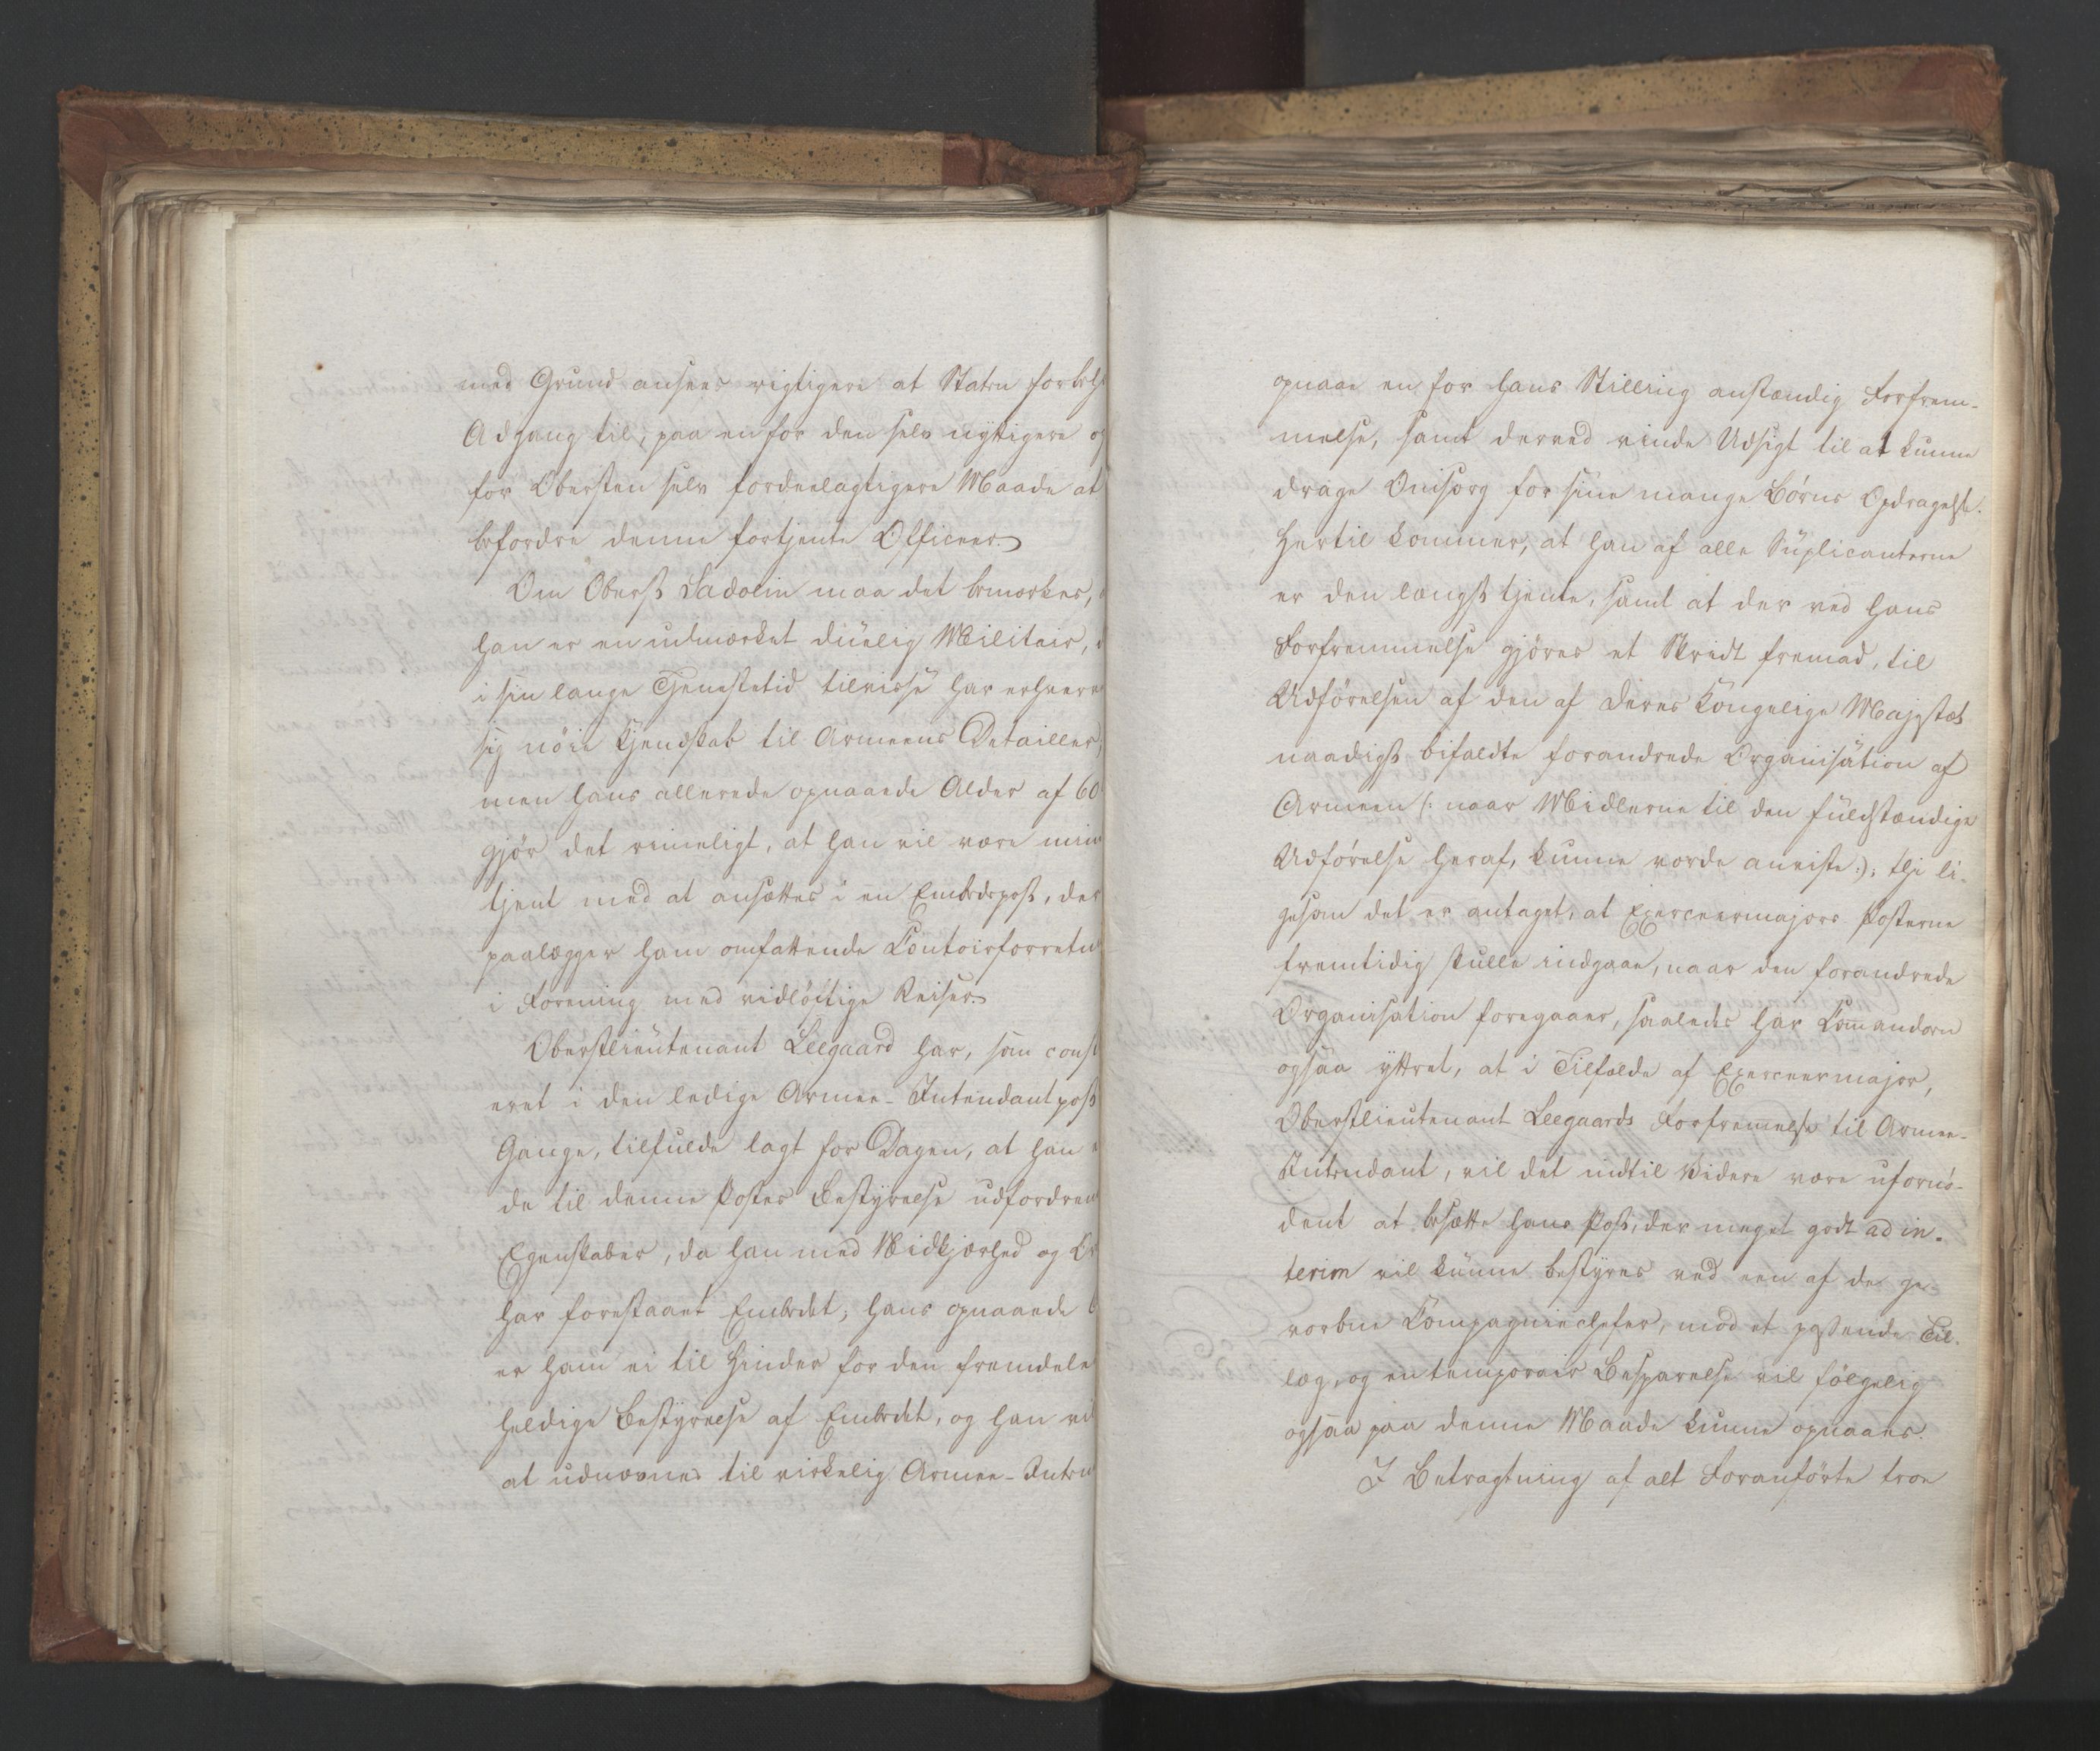 med Grund ansees rigtigere at Staten forbeh
Adgang til, paa en for den selv nyttigere og
for Obersten selv fordeelagtigere Maade at
befordre denne fortjente Officeer.
Om Oberst Sadolin maa det bemærkes,
han er en udmærket duelig Militair,
i sin lange Tjenestetid tilvisse har erhverv
sig nöie Kjendskab til Armeens Detailler,
men hans allerede opnaaede Alder af 60
gjör det rimeligt, at han vil være min
tjent med at ansættes i en Embedspost, der
paalægger ham omfattende Contoirforretn
i Forening med vidlöftige Reiser.
Oberstlieutenant Leegaard har, som const
eret i den ledige Armee-Intendantpost
Gange, tilfulde lagt for Dagen, at han e
de til denne Postes Bestyrelse udfordren
Egenskaber, da han med Nidkjærhed og
har forestaaet Embedet; hans opnaaede
er ham ei til Hinder for den fremdeles
heldige Bestyrelse af Embedet, og han vil
at udnævnes til virkelig Armee-Inten
opnaae en for hans Stilling anstændig Forfrem-
melse, samt derved vinde Udsigt til at kunne
drage Omsorg for sine mange Börns Opdragelse.
Hertil kommer, at han af alle Suplicanterne
er den længst tjente, samt at der ved hans
Forfremmelse gjöres et Skridt fremad, til
Udförelsen af den af Deres Kongelige Majestæt
naadigst bifaldte forandrede Organisation af
Armeen (: naar Midlerne til den fuldstændige
Udförelse heraf, kunne vorde anviste :); thi li-
gesom det er antaget, at Exerceermajors Posterne
fremtidig skulle indgaae, naar den forandrede
Organisation foregaaer, saaledes har Comandoen
ogsaa yttret, at i Tilfælde af Exerceermajor,
Oberstlieutenant Leegaards Forfremelse til Armee-
Intendant, vil det indtil Videre være ufornö-
dent at besætte hans Post, der meget godt ad in-
terim vil kunne bestyres ved een af de ge-
vorbne Compagniechefer, mod et passende Til-
læg, og en temporair Besparelse vil fölgelig
ogsaa paa denne Maade kunne opnaaes.
I Betragtning af alt Foranförte troe